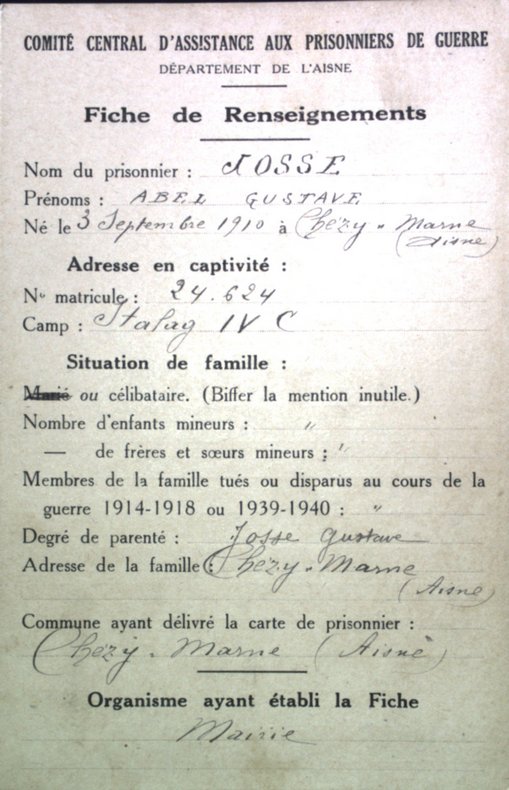 COMITÉ CENTRAL D'ASSISTANCE AUX PRISONNIERS DE GUERRE
DÉPARTEMENT DE L'AISNE
Fiche de Renseignements
Nom du prisonnier : JOSSE
Prénoms : ABEL GUSTAVE
Né le 3 Septembre 1910 à Chézy-Marne
(Aisne)
Adresse en captivité :
No matricule : 24.624
Camp : Stalag IV C
Situation de famille :
Marié ou célibataire. (Biffer la mention inutile.)
Nombre d'enfants mineurs : "
— de frères et sœurs mineurs : "
Membres de la famille tués ou disparus au cours de la
guerre 1914-1918 ou 1939-1940 : "
Degré de parenté : Josse Gustave
Adresse de la famille : Chézy-Marne
(Aisne)
Commune ayant délivré la carte de prisonnier :
Chézy-Marne (Aisne)
Organisme ayant établi la Fiche
Mairie